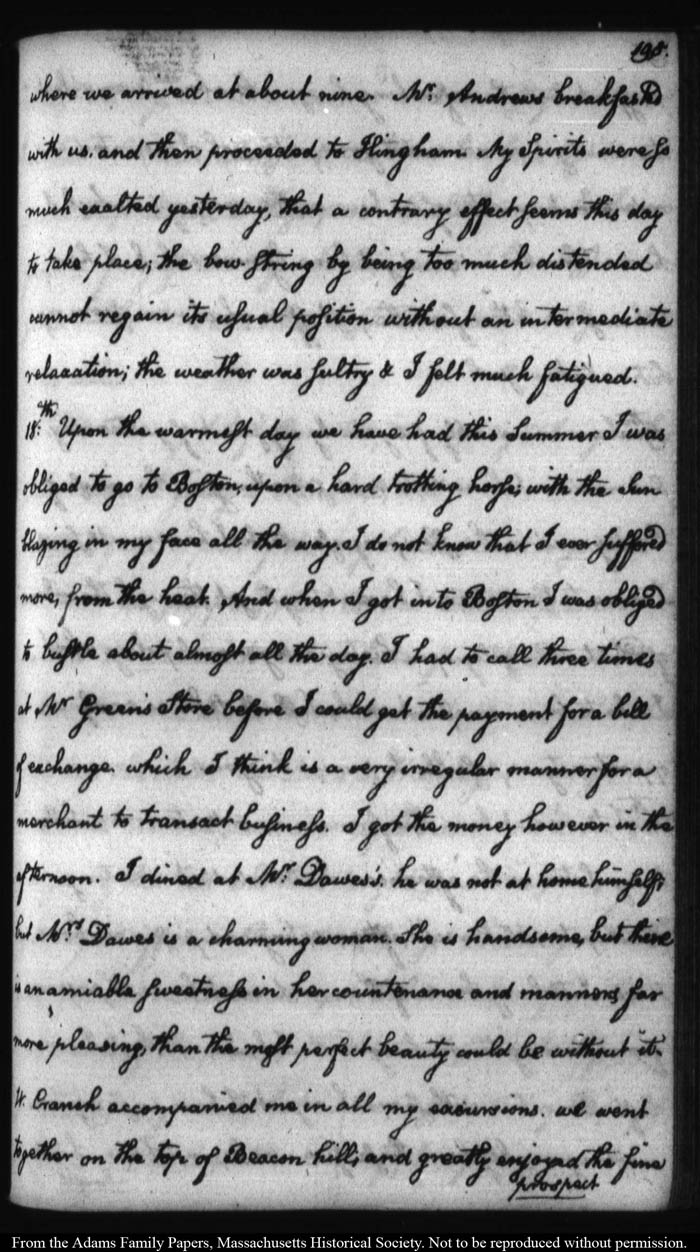 198.
where we arrived at about nine. Mr. Andrews breakfasted
with us, and then proceeded to Hingham. My Spirits were so
much exalted yesterday, that a contrary effect seems this day
to take place; the bow-string by being too much distended
cannot regain its usual position without an intermediate
relaxation; the weather was sultry & I felt much fatigued.
18th. Upon the warmest day we have had this Summer I was
obliged to go to Boston, upon a hard trotting horse, with the Sun
blazing in my face all the way. I do not know that I ever suffered
more, from the heat. And when I got into Boston I was obliged
to bustle about almost all the day. I had to call three times
at Mr Green's store before I could get the payment for a bill
of exchange. which I think is a very irregular manner for a
merchant to transact business. I got the money however in the
afternoon. I dined at Mr. Dawes's. he was not at home himself;
but Mrs Dawes is a charming woman. She is handsome, but there
is an amiable sweetness in her countenance and manners far
more pleasing, than the most perfect beauty could be without it.
W. Cranch accompanied me in all my excursions. we went
together on the top of Beacon hill, and greatly enjoyed the fine
prospect
From the Adams Family Papers, Massachusetts Historical Society. Not to be reproduced without permission.